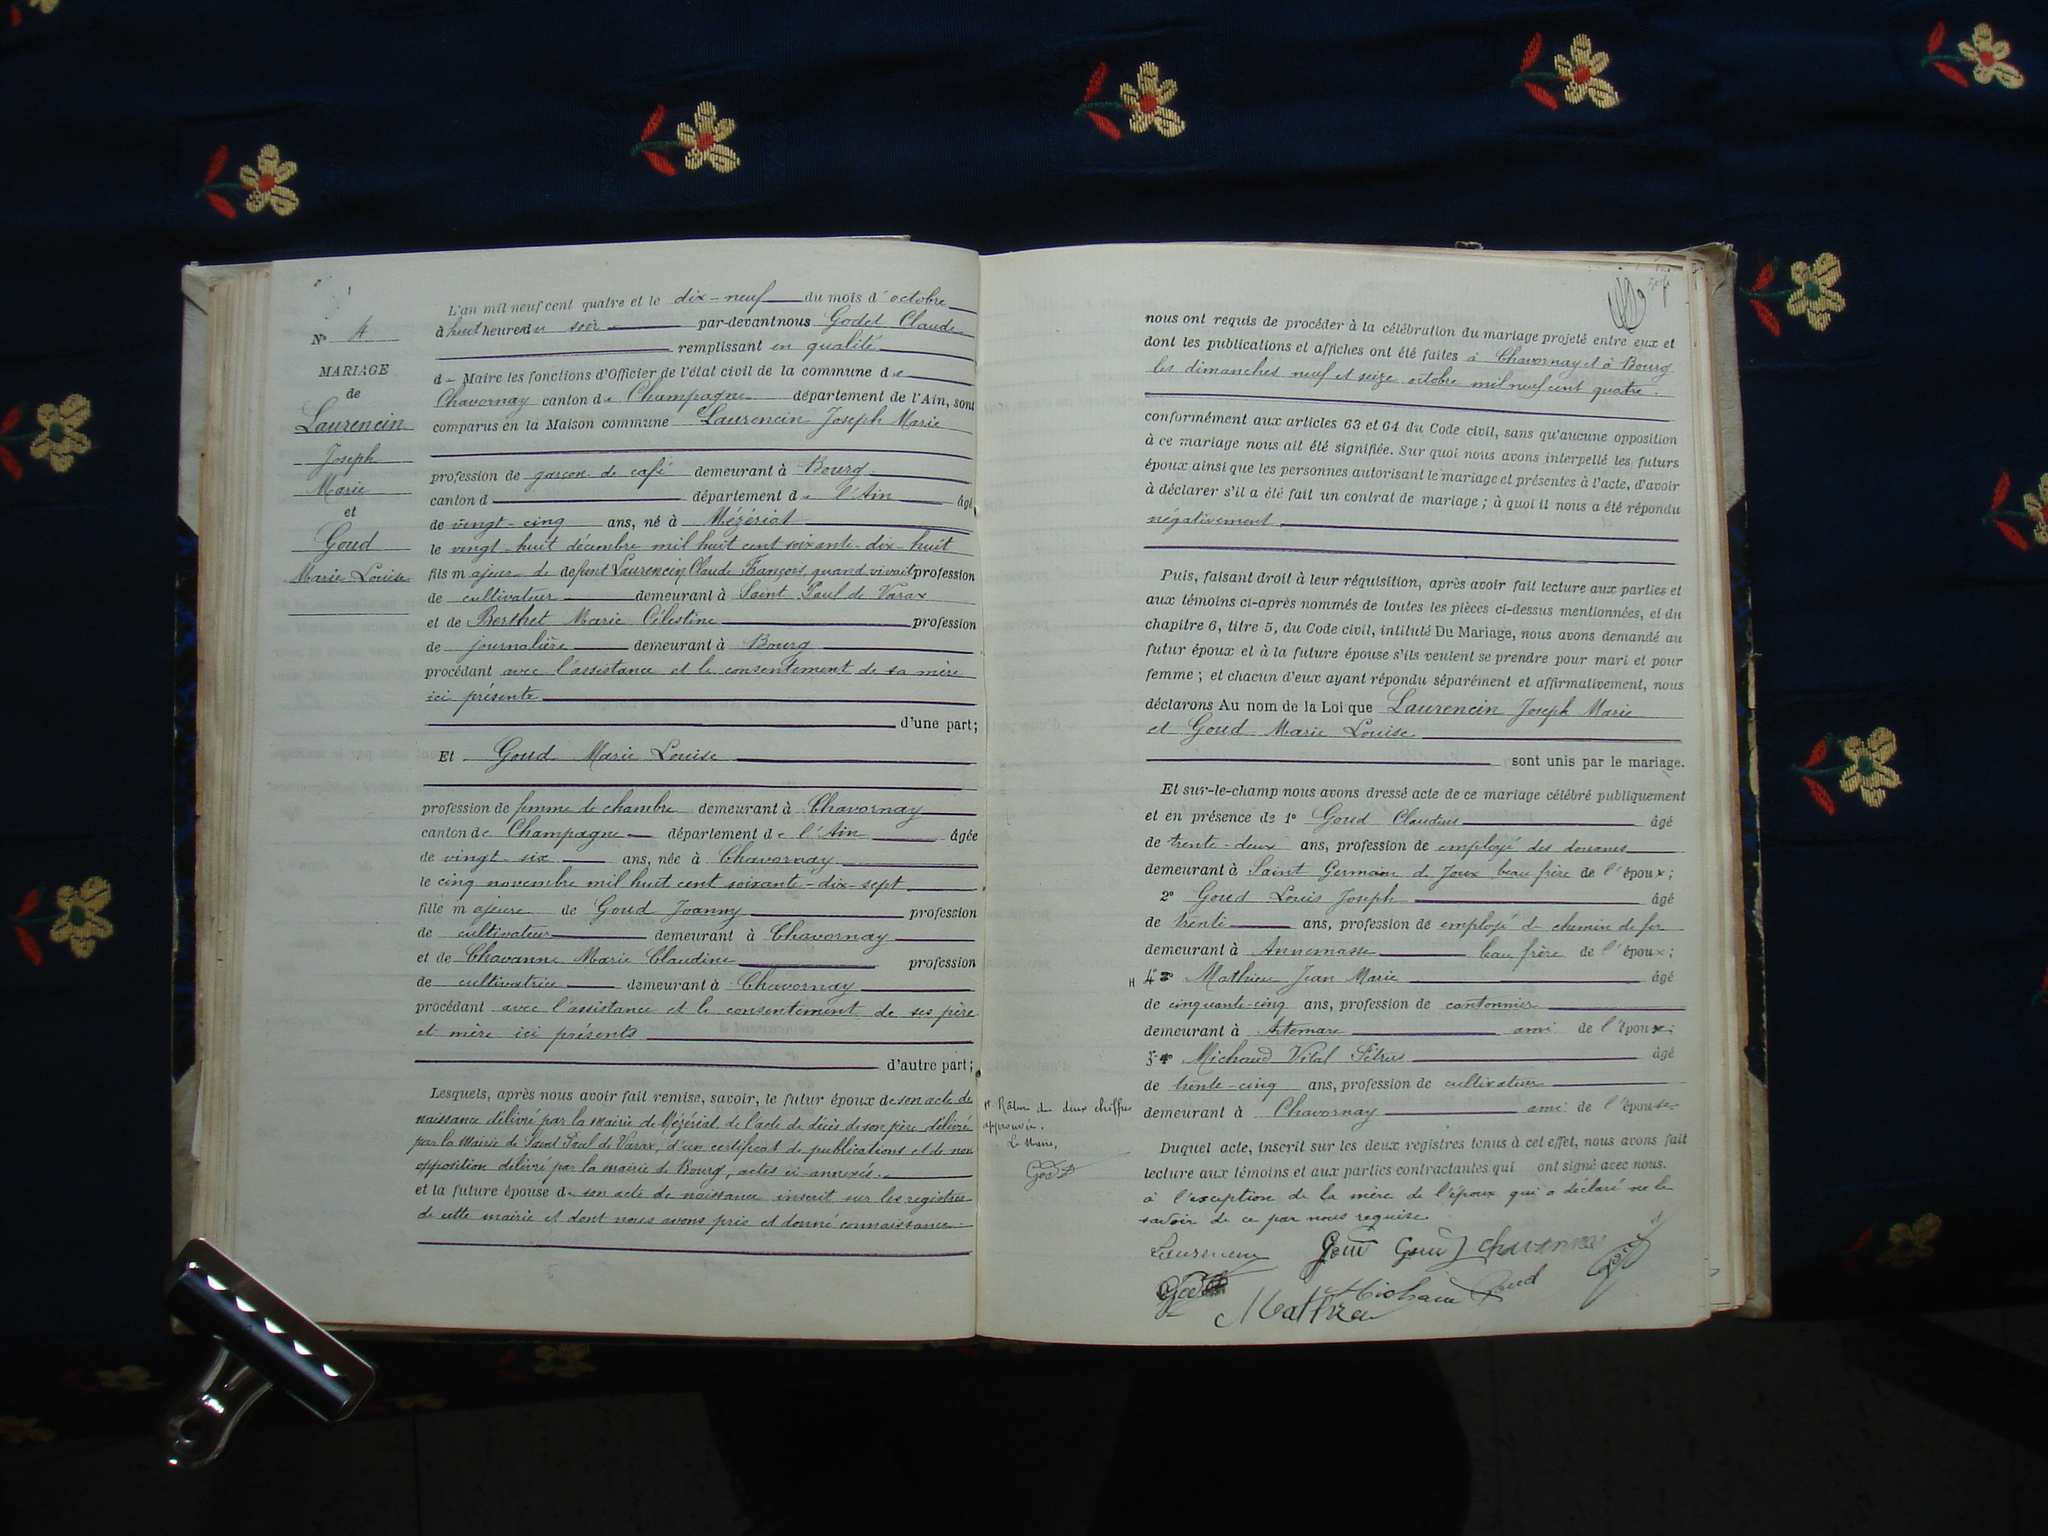 N° 4
MARIAGE
de
Laurencin
Joseph
Marie
et
Goud
Marie Louise
L'an mil neuf cent quatre et le dix-neuf du mois d'octobre
à huit heures du soir par-devant nous Godet Claude
remplissant en qualité
de Maire les fonctions d'Officier de l'état civil de la commune de
Chavornay canton de Champagne département de l'Ain, sont
comparus en la Maison commune Laurencin Joseph Marie
profession de garçon de café demeurant à Bourg
canton d département de l'Ain âgé
de vingt-cinq ans, né à Mézériat
le vingt-huit décembre mil huit cent soixante-dix-huit
fils majeur de defunt Laurencin Claude François quand vivait profession
de cultivateur demeurant à Saint Paul de Varax
et de Berthet Marie Célestine profession
de journalière demeurant à Bourg
procédant avec l'assistance et le consentement de sa mère
ici présente
d'une part;
Et Goud Marie Louise
profession de femme de chambre demeurant à Chavornay
canton de Champagne département de l'Ain âgée
de vingt six ans, née à Chavornay
le cinq novembre mil huit cent soixante-dix-sept
fille majeure de Goud Joanny profession
de cultivateur demeurant à Chavornay
et de Chavanne Marie Claudine profession
de cultivatrice demeurant à Chavornay
procédant avec l'assistance et le consentement de ses père
et mère ici présents
d'autre part;
Lesquels, après nous avoir fait remise, savoir, le futur époux de son acte de
naissance délivré par la mairie de Mézériat de l'acte de décès de son père délivré
par la Mairie de Saint Paul de Varax, d'un certificat de publications et de non
opposition délivré par la mairie de Bourg, actes ci annexés.
et la future épouse de son acte de naissance inscrit sur les registres
de cette mairie et dont nous avons pris et donné connaissance
nous ont requis de procéder à la célébration du mariage projeté entre eux et
dont les publications et affiches ont été faites à Chavornay et à Bourg
les dimanches neuf et seize octobre mil neuf cent quatre.
conformément aux articles 63 et 64 du Code civil, sans qu'aucune opposition
à ce mariage nous ait été signifiée. Sur quoi nous avons interpellé les futurs
époux ainsi que les personnes autorisant le mariage et présentes à l'acte, d'avoir
à déclarer s'il a été fait un contrat de mariage ; à quoi il nous a été répondu
négativement
Puis, faisant droit à leur réquisition, après avoir fait lecture aux parties et
aux témoins ci-après nommés de toutes les pièces ci-dessus mentionnées, et du
chapitre 6, titre 5, du Code civil, intitulé Du Mariage, nous avons demandé au
futur époux et à la future épouse s'ils veulent se prendre pour mari et pour
femme ; et chacun d'eux ayant répondu séparément et affirmativement, nous
déclarons Au nom de la Loi que Laurencin Joseph Marie
et Goud Marie Louise
sont unis par le mariage.
Et sur-le-champ nous avons dressé acte de ce mariage célébré publiquement
et en présence de 1° Goud Claudius âgé
de trente-deux ans, profession de employé des douanes
demeurant à Saint Germain de Joux beau frère de l'époux;
2° Goud Louis Joseph âgé
de trente ans, profession de employé de chemin de fer
demeurant à Annemasse beau frère de l'époux;
H 4° Mathieu Jean Marie âgé
de cinquante-cinq ans, profession de cantonnier
demeurant à Artemare ami de l'époux;
Michaud Vital Pétrus âgé
de trente-cinq ans, profession de cultivateur
demeurant à Chavornay ami de l'épouse
H Rature de deux chiffres
approuvée.
Le Maire,
Godet
Duquel acte, inscrit sur les deux registres tenus à cet effet, nous avons fait
lecture aux témoins et aux parties contractantes qui ont signé avec nous.
à l'exception de la mère de l'époux qui a déclaré ne le
savoir de ce par nous requise
Laurencin Goud Goud J Chavanne
Michaud Goud
Mathieu